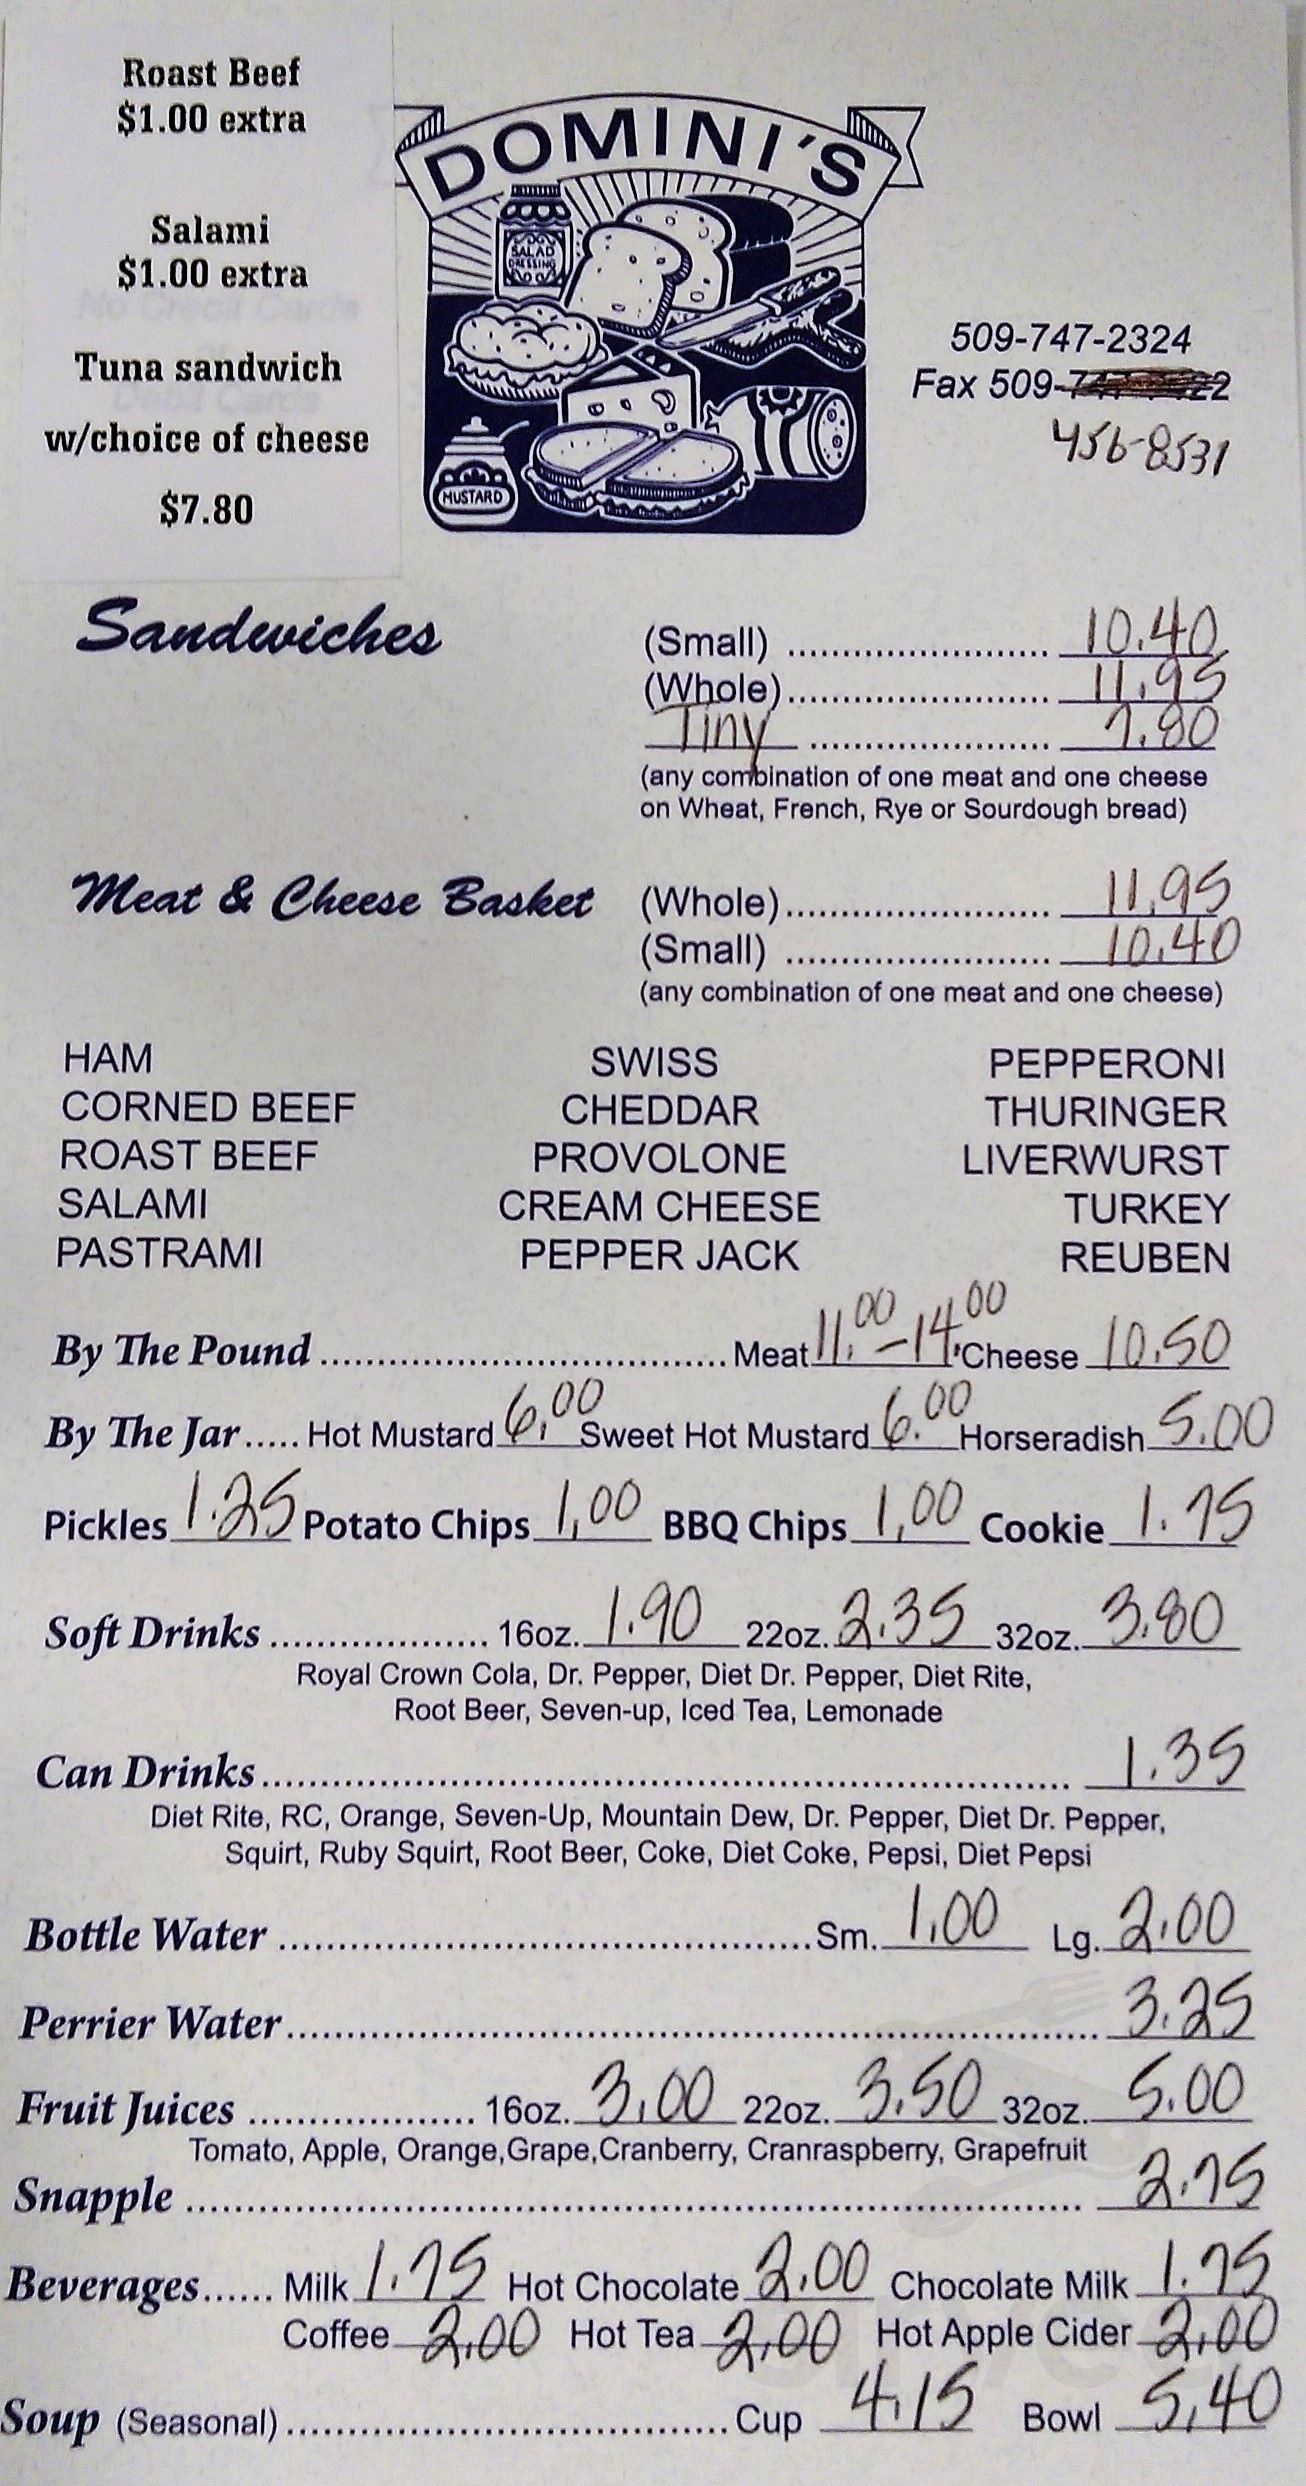 Roast Beef
$1.00 extra
Salami
$1.00 extra
Tuna sandwich
w/choice of cheese
$7.80
DOMINI'S
SALAD
DRESSING
MUSTARD
509-747-2324
Fax 509-
456-8531
Sandwiches (Small) ........................ 10.40
(Whole)........................ 11.95
Tiny ...................... 7.80
(any combination of one meat and one cheese
on Wheat, French, Rye or Sourdough bread)
Meat & Cheese Basket (Whole)........................ 11.95
(Small) ........................ 10.40
(any combination of one meat and one cheese)
HAM SWISS PEPPERONI
CORNED BEEF CHEDDAR THURINGER
ROAST BEEF PROVOLONE LIVERWURST
SALAMI CREAM CHEESE TURKEY
PASTRAMI PEPPER JACK REUBEN
By The Pound .................................. Meat 11.00-14.00 Cheese 10.50
By The Jar ..... Hot Mustard 6.00 Sweet Hot Mustard 6.00 Horseradish 5.00
Pickles 1.25 Potato Chips 1.00 BBQ Chips 1.00 Cookie 1.75
Soft Drinks ................... 16oz. 1.90 22oz. 2.35 32oz. 3.80
Royal Crown Cola, Dr. Pepper, Diet Dr. Pepper, Diet Rite,
Root Beer, Seven-up, Iced Tea, Lemonade
Can Drinks .................................................................... 1.35
Diet Rite, RC, Orange, Seven-Up, Mountain Dew, Dr. Pepper, Diet Dr. Pepper,
Squirt, Ruby Squirt, Root Beer, Coke, Diet Coke, Pepsi, Diet Pepsi
Bottle Water ............................................. Sm. 1.00 Lg. 2.00
Perrier Water .................................................................... 3.25
Fruit Juices ................... 16oz. 3.00 22oz. 3.50 32oz. 5.00
Tomato, Apple, Orange,Grape,Cranberry, Cranraspberry, Grapefruit
Snapple ........................................................................... 2.75
Beverages...... Milk 1.75 Hot Chocolate 2.00 Chocolate Milk 1.75
Coffee 2.00 Hot Tea 2.00 Hot Apple Cider 2.00
Soup (Seasonal) ..................................... Cup 4.15 Bowl 5.40